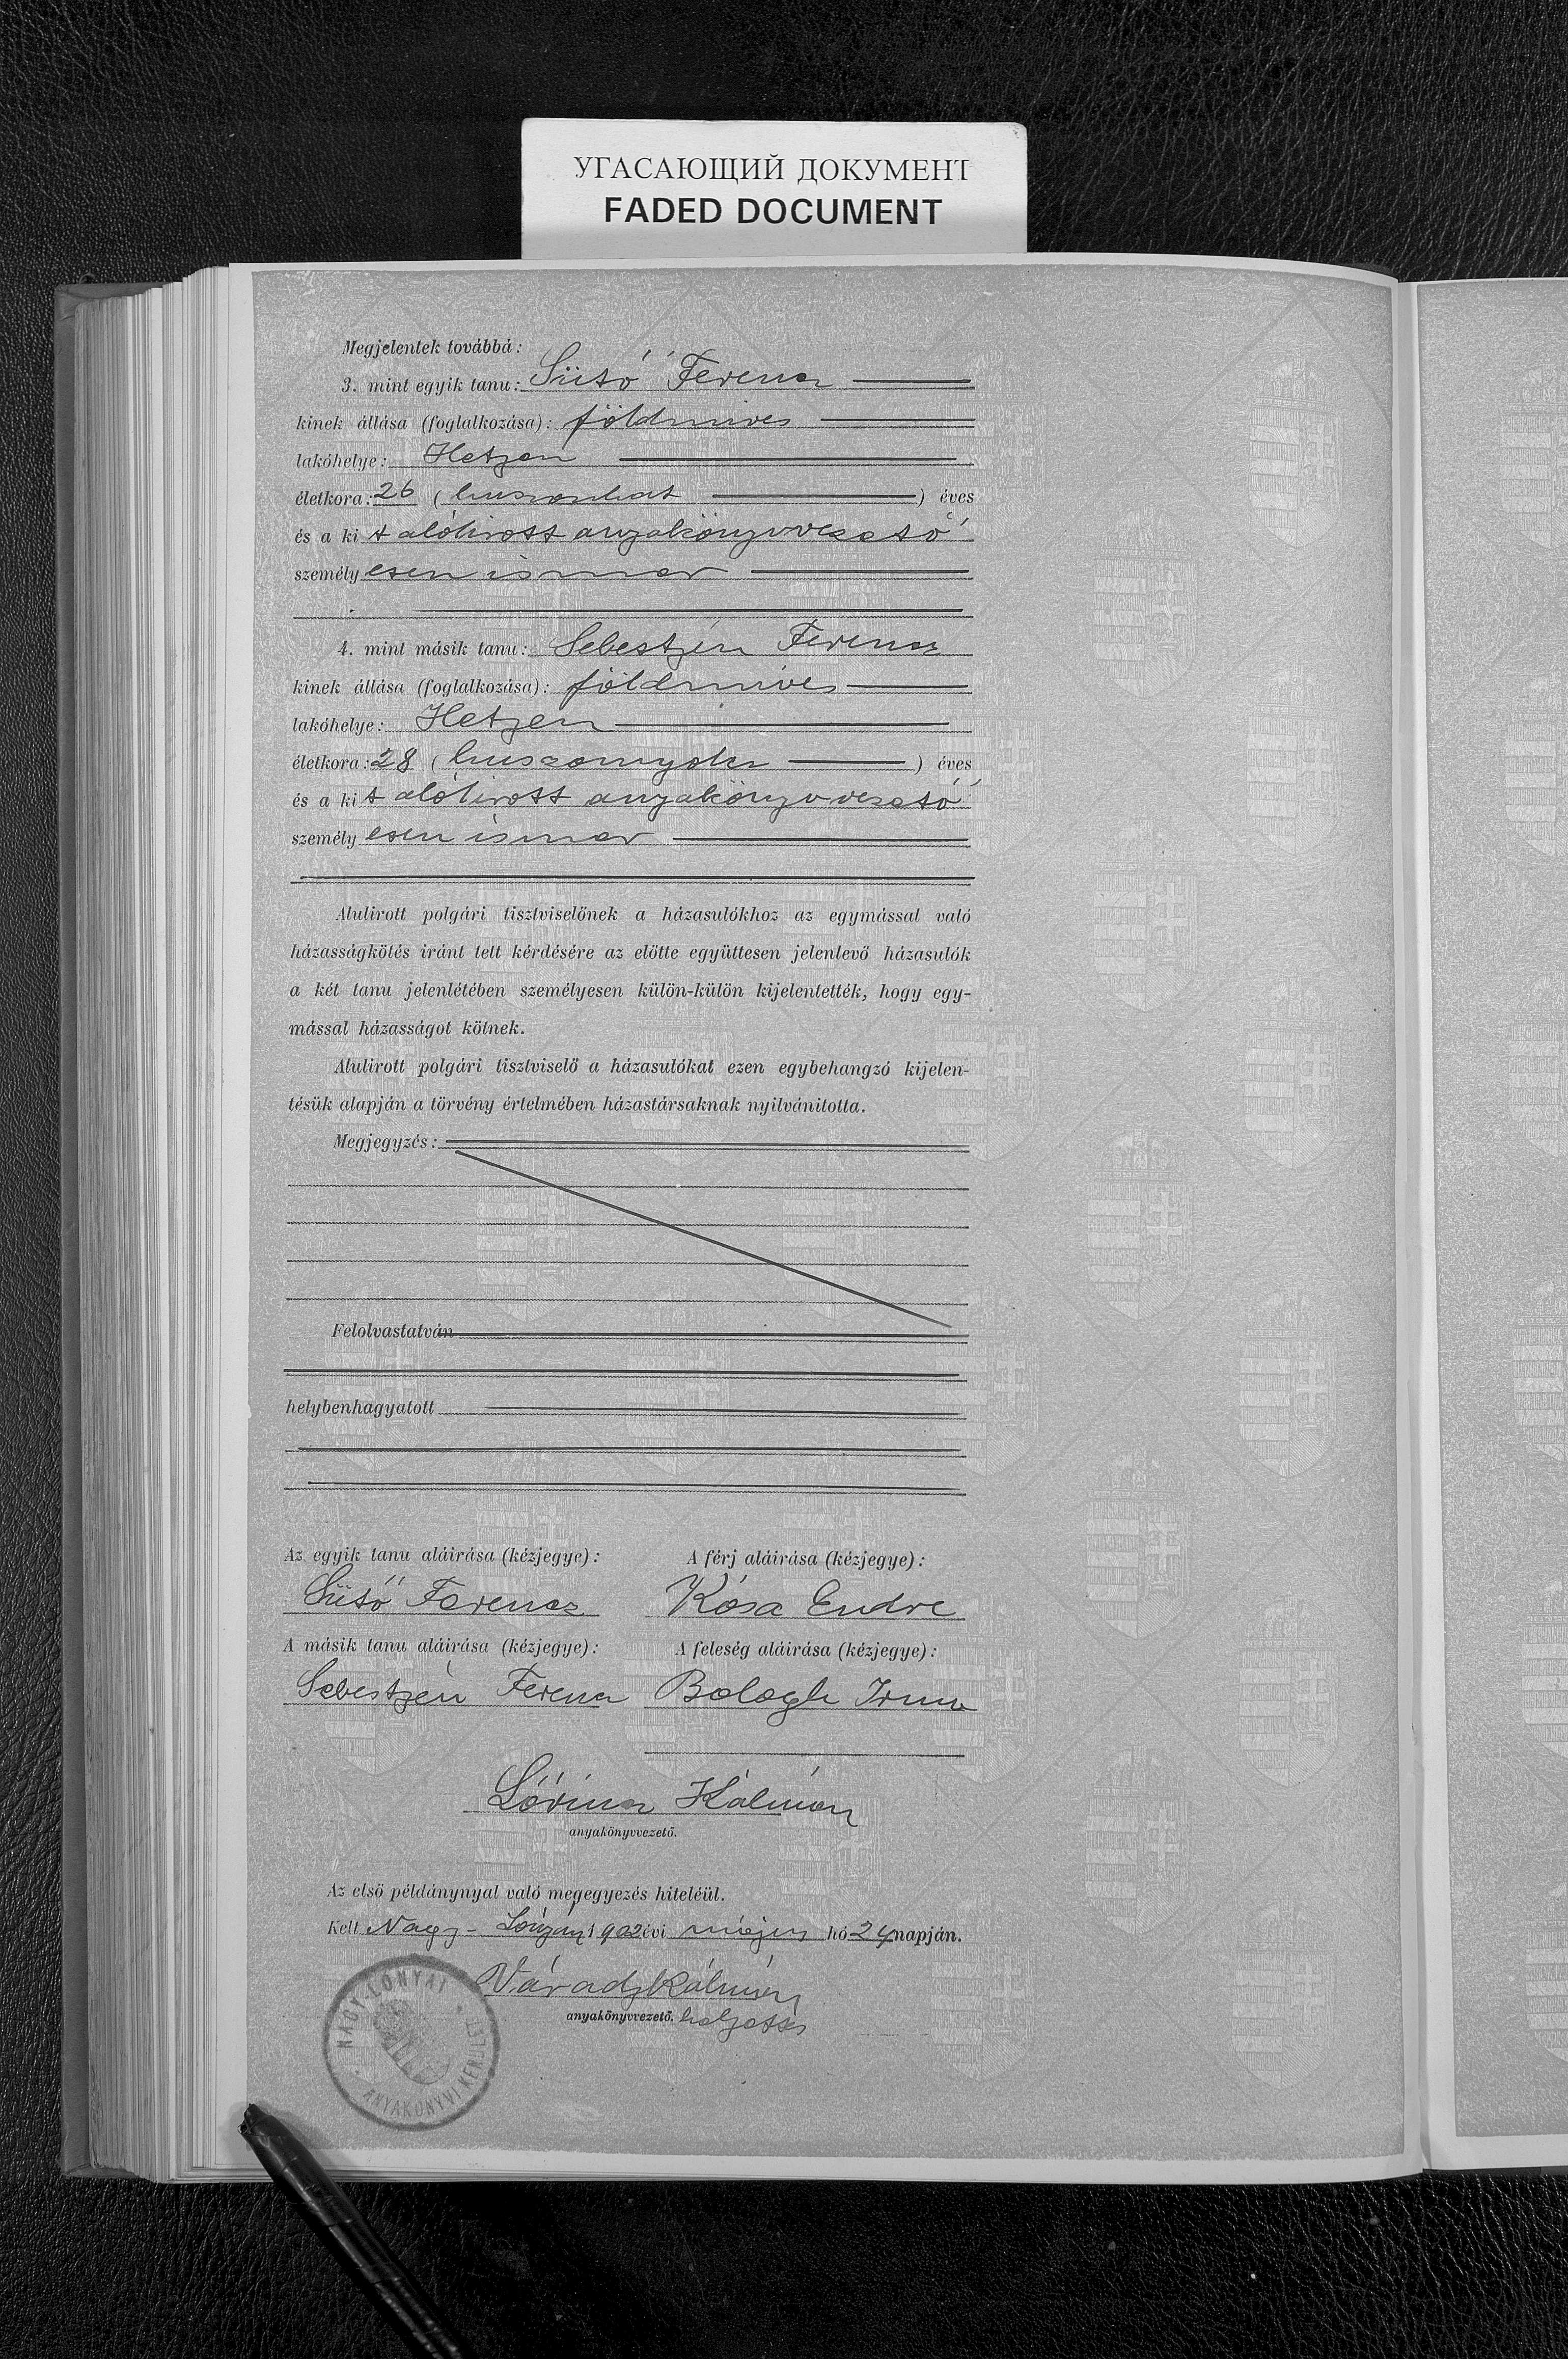 УГАСАЮЩИЙ ДОКУМЕНТ
FADED DOCUMENT
Megjelentek továbbá:
3. mint egyik tanu: Sütő Ferencz
kinek állása (foglalkozása): földmives
lakóhelye: Hetyen
életkora: 26 (huszonhat) éves
és a ki t alólirott anyakönyvvezető
személy esen ismer
4. mint másik tanu: Sebestyén Ferencz
kinek állása (foglalkozása): földmives
lakóhelye: Hetyen
életkora: 28 (huszonnyolcz) éves
és a ki t alólirott anyakönyvvezető
személy esen ismer
Alulirott polgári tisztviselőnek a házasulókhoz az egymással való
házasságkötés iránt tett kérdésére az előtte együttesen jelenlevő házasulók
a két tanu jelenlétében személyesen külön-külön kijelentették, hogy egy-
mással házasságot kötnek.
Alulirott polgári tisztviselő a házasulókat ezen egybehangzó kijelen-
tésük alapján a törvény értelmében házastársaknak nyilvánitotta.
Megjegyzés:
Felolvastatván
helybenhagyatott
Az egyik tanu aláirása (kézjegye): A férj aláirása (kézjegye):
Sütő Ferencz Kósa Endre
A másik tanu aláirása (kézjegye): A feleség aláirása (kézjegye):
Sebestyén Ferencz Balogh Irma
Lőrincz Kálmán
anyakönyvvezető.
Az első példánynyal való megegyezés hiteléül.
Kelt Nagy-Lónyay 1902 évi május hó 24 napján.
Várady Kálmán
anyakönyvvezető. helyettes
NAGY-LÓNYAI
ANYAKÖNYVI KERÜLET